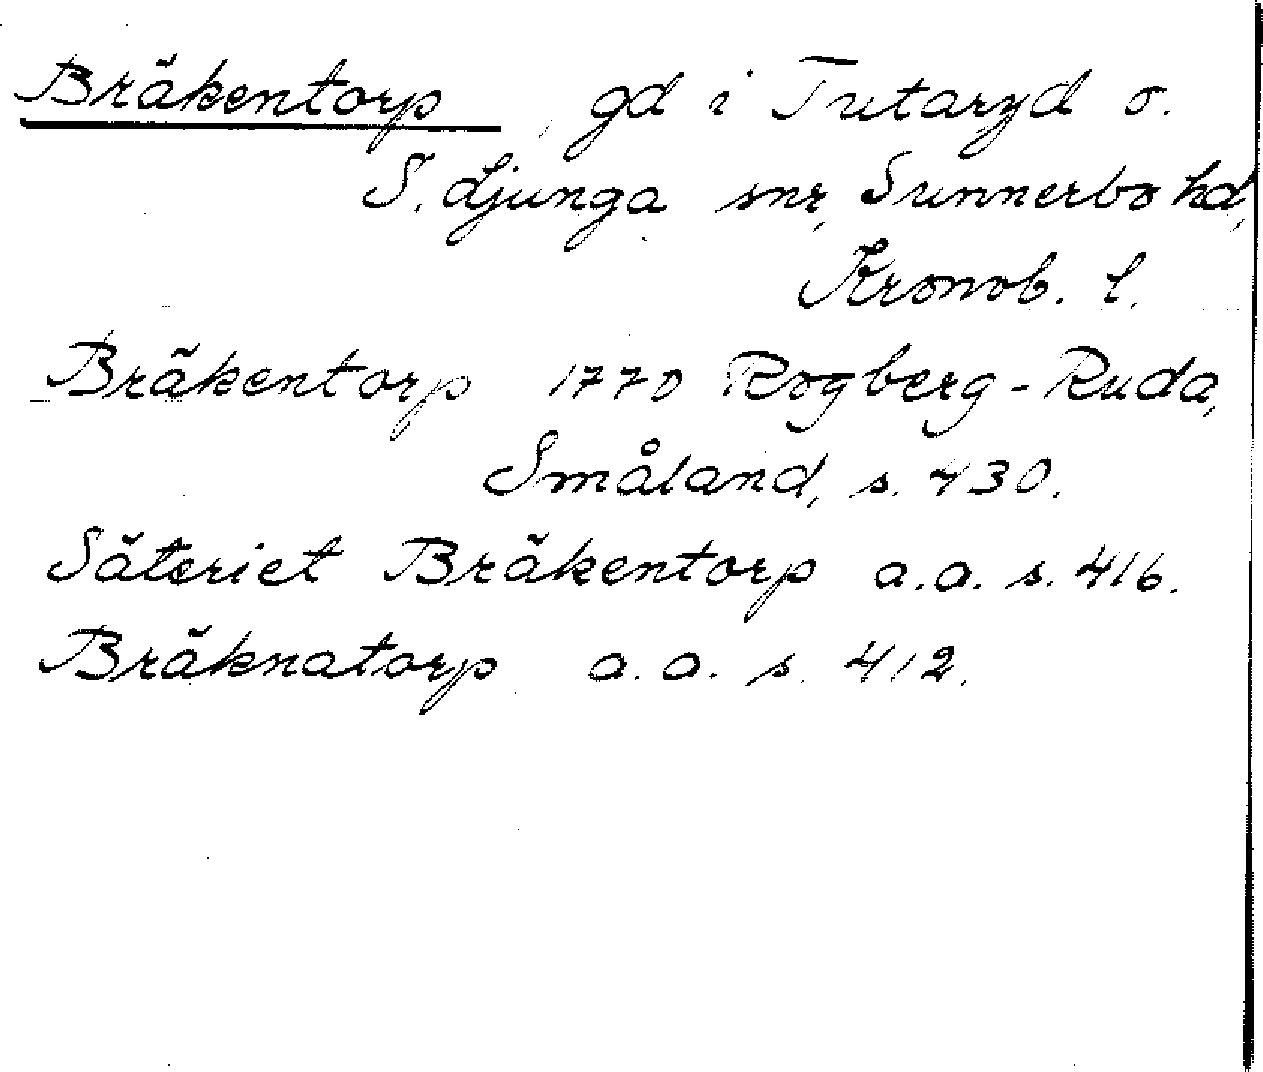 Bräkentorp, gd i Tutaryd o.
S. Ljunga snr, Sunnerbo hd,
Kronob. l.
Bräkentorp 1770 Rogberg-Ruda,
Småland, s. 430.
Säteriet Bräkentorp a.a. s. 416.
Bräknatorp a.a. s. 412.